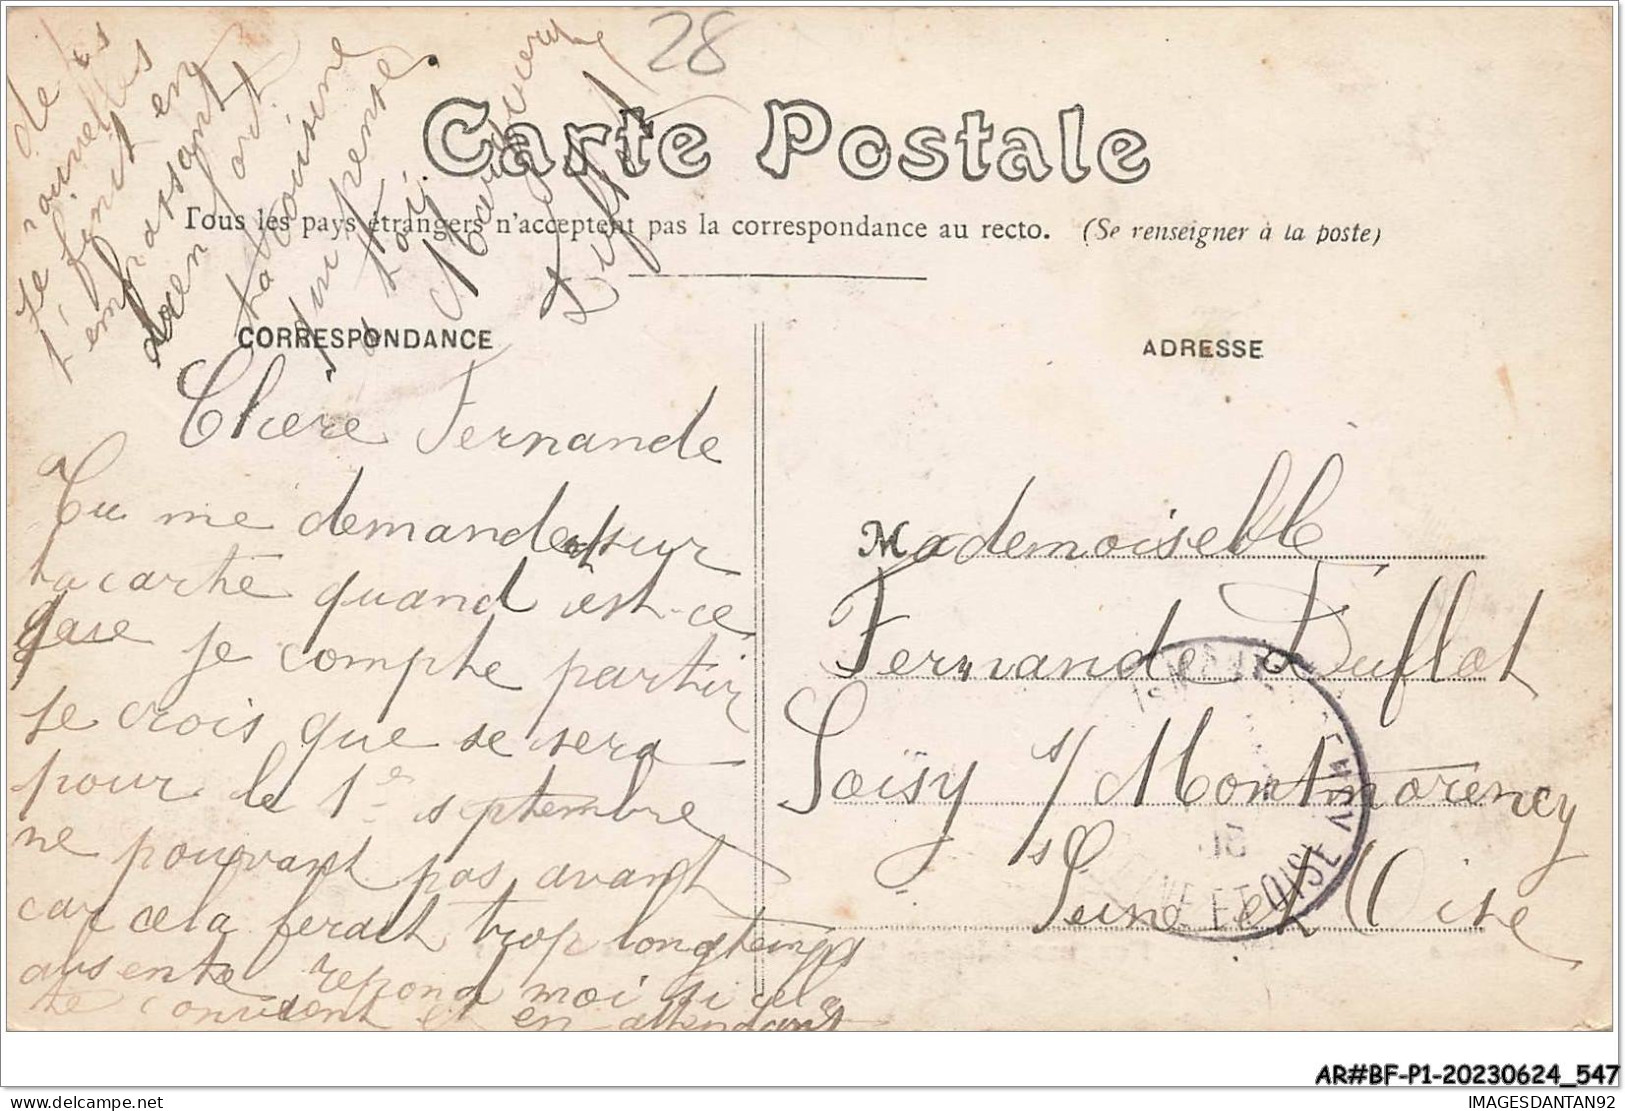 28
Carte Postale
Tous les pays étrangers n'acceptent pas la correspondance au recto. (Se renseigner à la poste)
CORRESPONDANCE
Chère Fernande
Tu me demandes sur
ta carte quand est-ce
que je compte partir
je crois que se sera
pour le 1er septembre
ne pouvant pas avant
car cela ferait trop longtemps
absente répond moi si cela
te convient et en attendant
de tes
nouvelles
je finit en
t'embrassant
bien fort
ta cousine
qui pense
a toi.
Marguerite
Duflot
ADRESSE
Mademoiselle
Fernande Duflot
Soisy s/ Montmorency
Seine et Oise
SEINE ET OISE
AR#BF-P1-20230624_547
delcampe.net
IMAGESDANTAN92